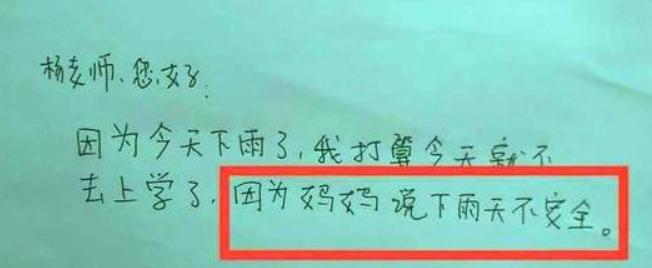 杨老师、您好：
因为今天下雨了，我打算今天就不
去上学了，因为妈妈说下雨天不安全。